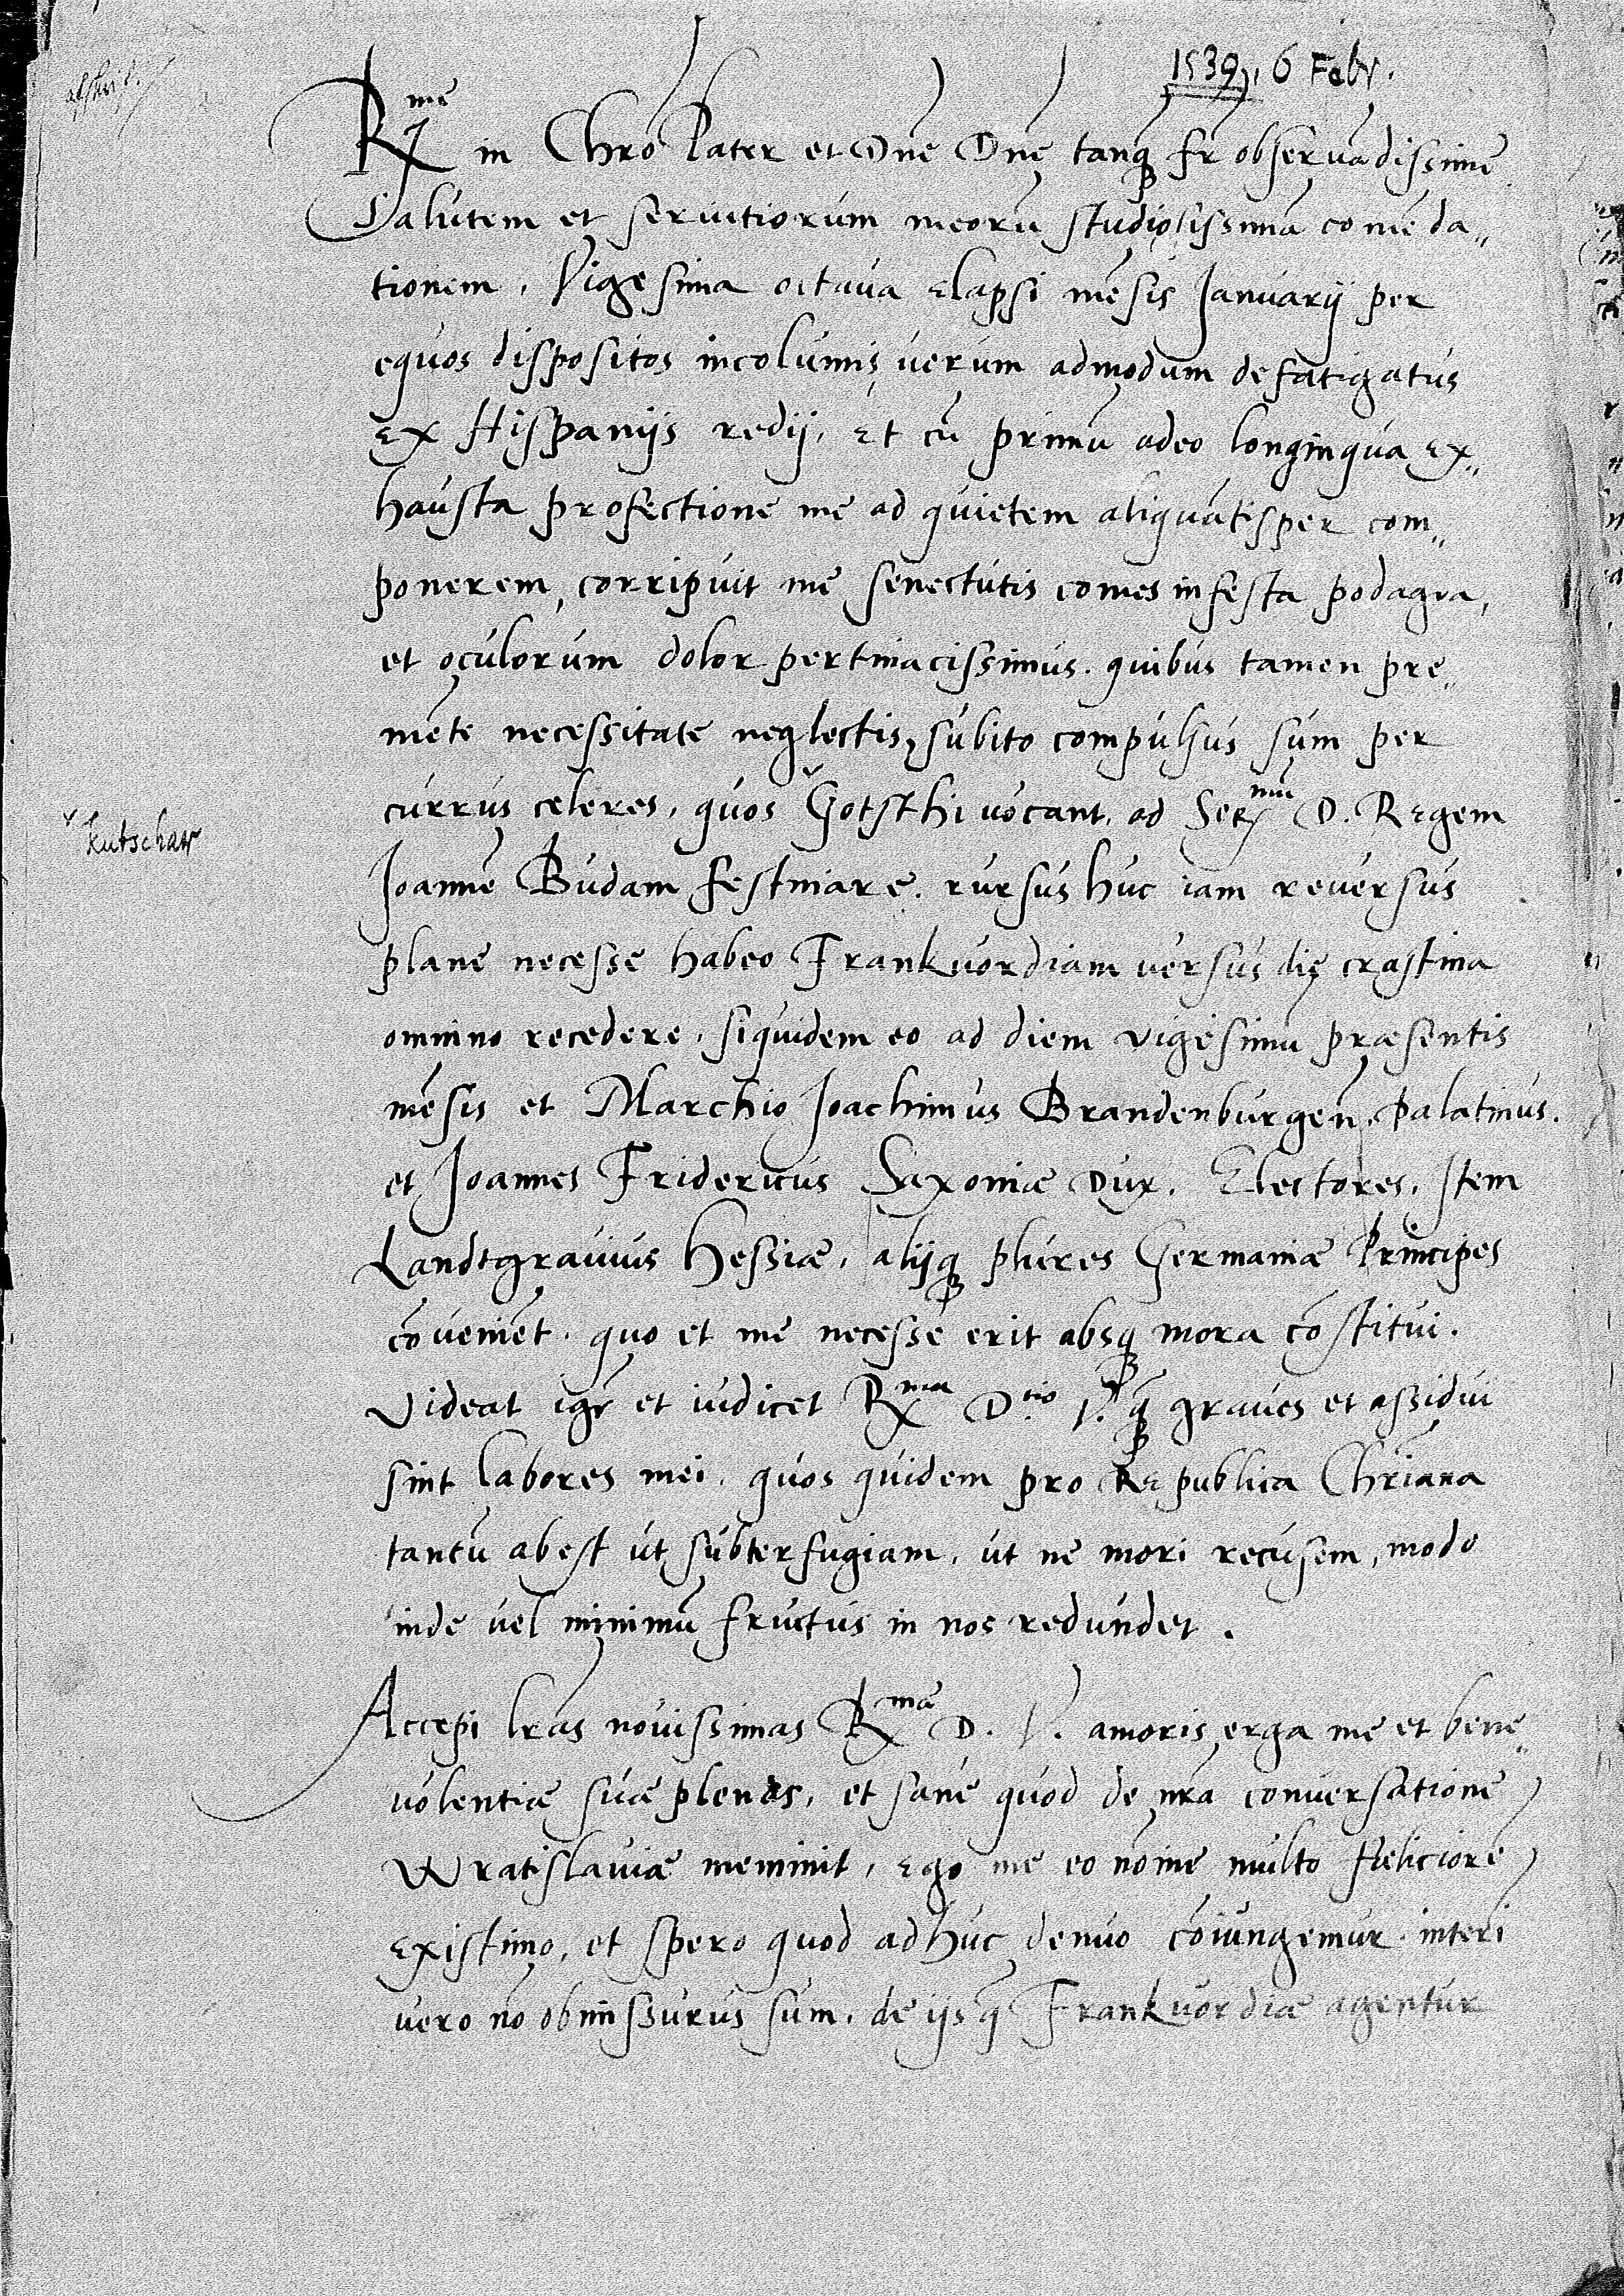 1539, 6 Febr.
Rme in Chro Pater et Dne Dne tanq fr observādissime
Salutem et servitiorum meorū studiosissimā comēda„
tionem. Vigesima octava elapsi mēsis Januarij per
equos dispositos incolumis, verum admodum defatigatus
ex Hispanijs redij. Et cū primū adeo longinqua ex„
hausta profectione me ad quietem aliquātisper com„
ponerem, corripuit me senectutis comes infesta podagra,
et oculorum dolor pertinacissimus. quibus tamen pre„
mēte necessitate neglectis, subito compulsus sum per
currus celeres, quos Gotsthi vocant, ad Sermū D. Regem
Kutschar
Joannē Budam festinare. rursus huc iam reversus
plane necesse habeo Frankvordiam versus die crastina
omnino recedere, siquidem eo ad diem vigesimū praesentis
mēsis et Marchio Joachimus Brandenburgeñ. Palatinus.
et Joannes Fridericus Saxoniae Dux. Electores. Item
Landtgravius Hessiae, alijq plures Germaniae Principes
cōveniēt. quo et me necesse erit absq mora cōstitui.
Videat igr et iudicet Rma Dtio V. q graves et assidui
sint labores mei. quos quidem pro Republica Chriana
tantū abest ut subterfugiam, ut ne mori recusem, modo
inde vel minimū fructus in nos redundet.
Accepi lras novissimas Rmae D. V. amoris erga me et bene„
volentiae suae plenas, et sane quod de nra conversatione
Wratislaviae meminit, Ego me eo nomine multo feliciorē
existimo, et spero quod adhuc denuo cōiungemur. interī
vero nō obmissurus sum, de ijs q Frankvordiae agentur